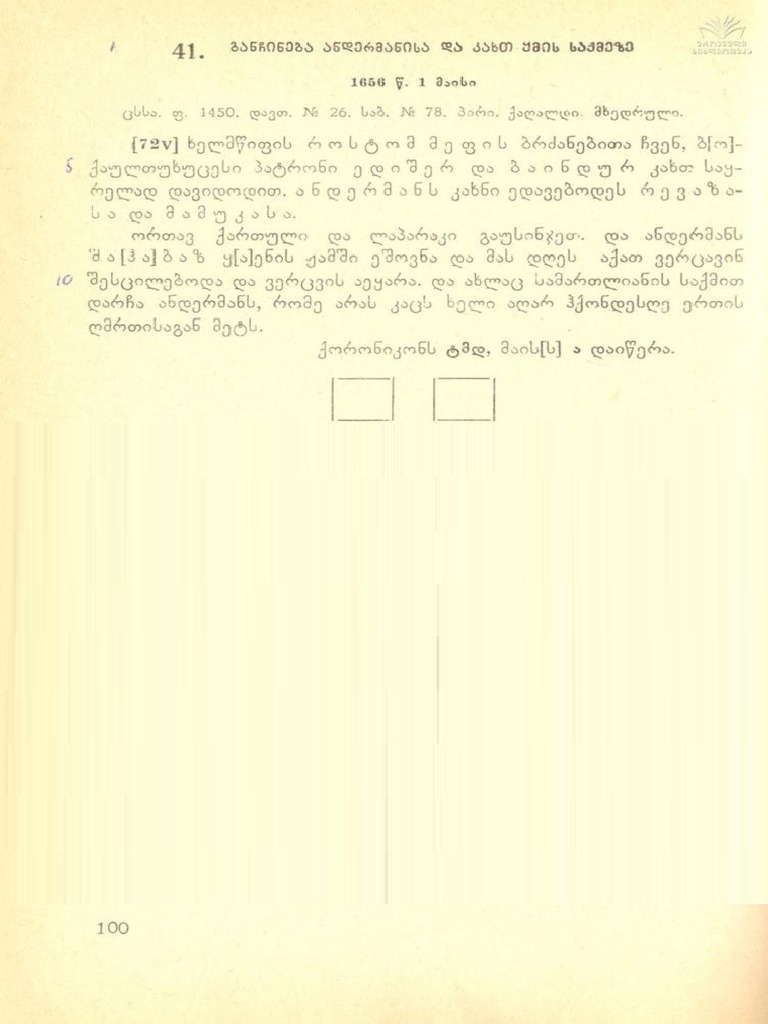 41. განჩინება ანდერმანისა და კახთ ყმის საქმეზე
ეროვნული
ბიბლიოთეკა
1656 წ. 1 მაისი
ცსსა. ფ. 1450. დავთ. № 26. საბ. № 78. პირი. ქაღალდი. მხედრული.
[72v] ხელმწიფის როსტომ მეფის ბრძანებითა ჩვენ, ბ[ო]-
5 ქაულთუხუცესი პატრონი ედიშერ და ბაინდურ კახთ საყ-
რელად დავიდოდით. ანდერმანს კახნი ედავებოდეს რევაზა-
სა და მამუკასა.
ორთავ ქართული და ლაპარაკი გაუსინჯეთ. და ანდერმანს
შა[ჰა]ბაზ ყ[ა]ენის ჟამში ეშოვნა და მას დღეს აქათ ვერცავინ
10 შესცილებოდა და ვერცვის აეყარა. და ახლაც სამართლიანის საქმით
დარჩა ანდერმანს, რომე არას კაცს ხელი აღარ ჰქონდესღე ერთის
ღმრთისაგან მეტს.
ქორონიკონს ტმდ, მაის[ს] ა დაიწერა.
100